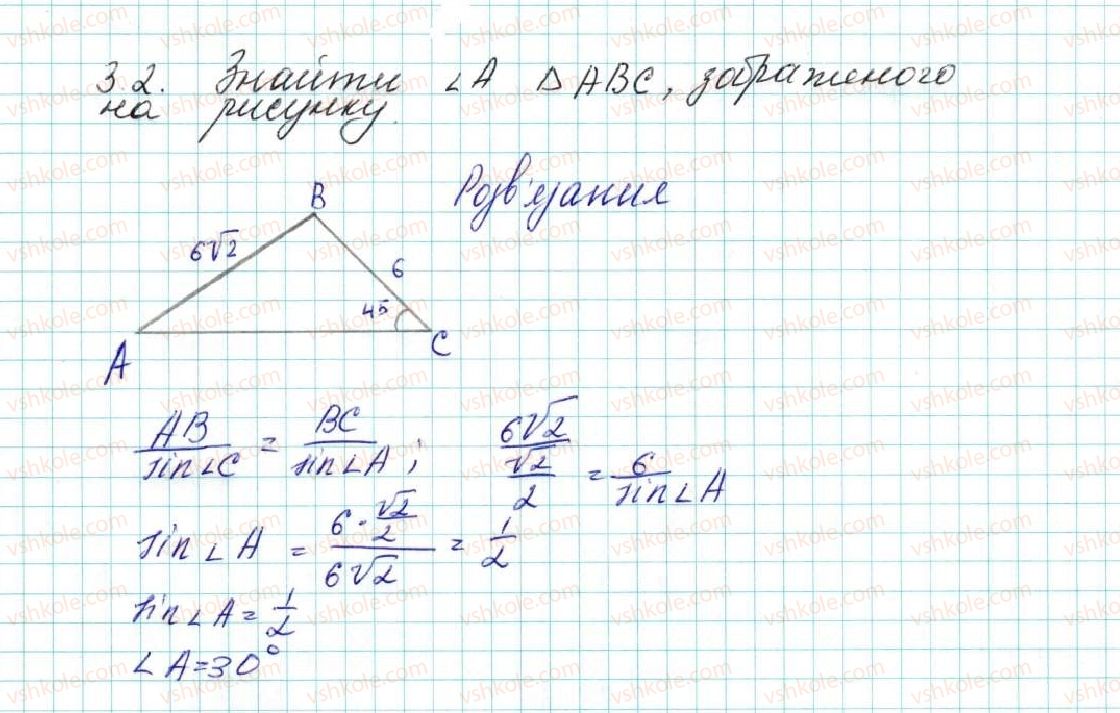 3.2. Знайти ∠A △ABC, зображеного
на рисунку.
Розв'язання
B
6√2
6
45
A
C
AB/sin∠C = BC/sin∠A; 6√2/(√2/2) = 6/sin∠A
sin∠A = (6·√2/2)/(6√2) = 1/2
sin∠A = 1/2
∠A = 30°
vshkole.com